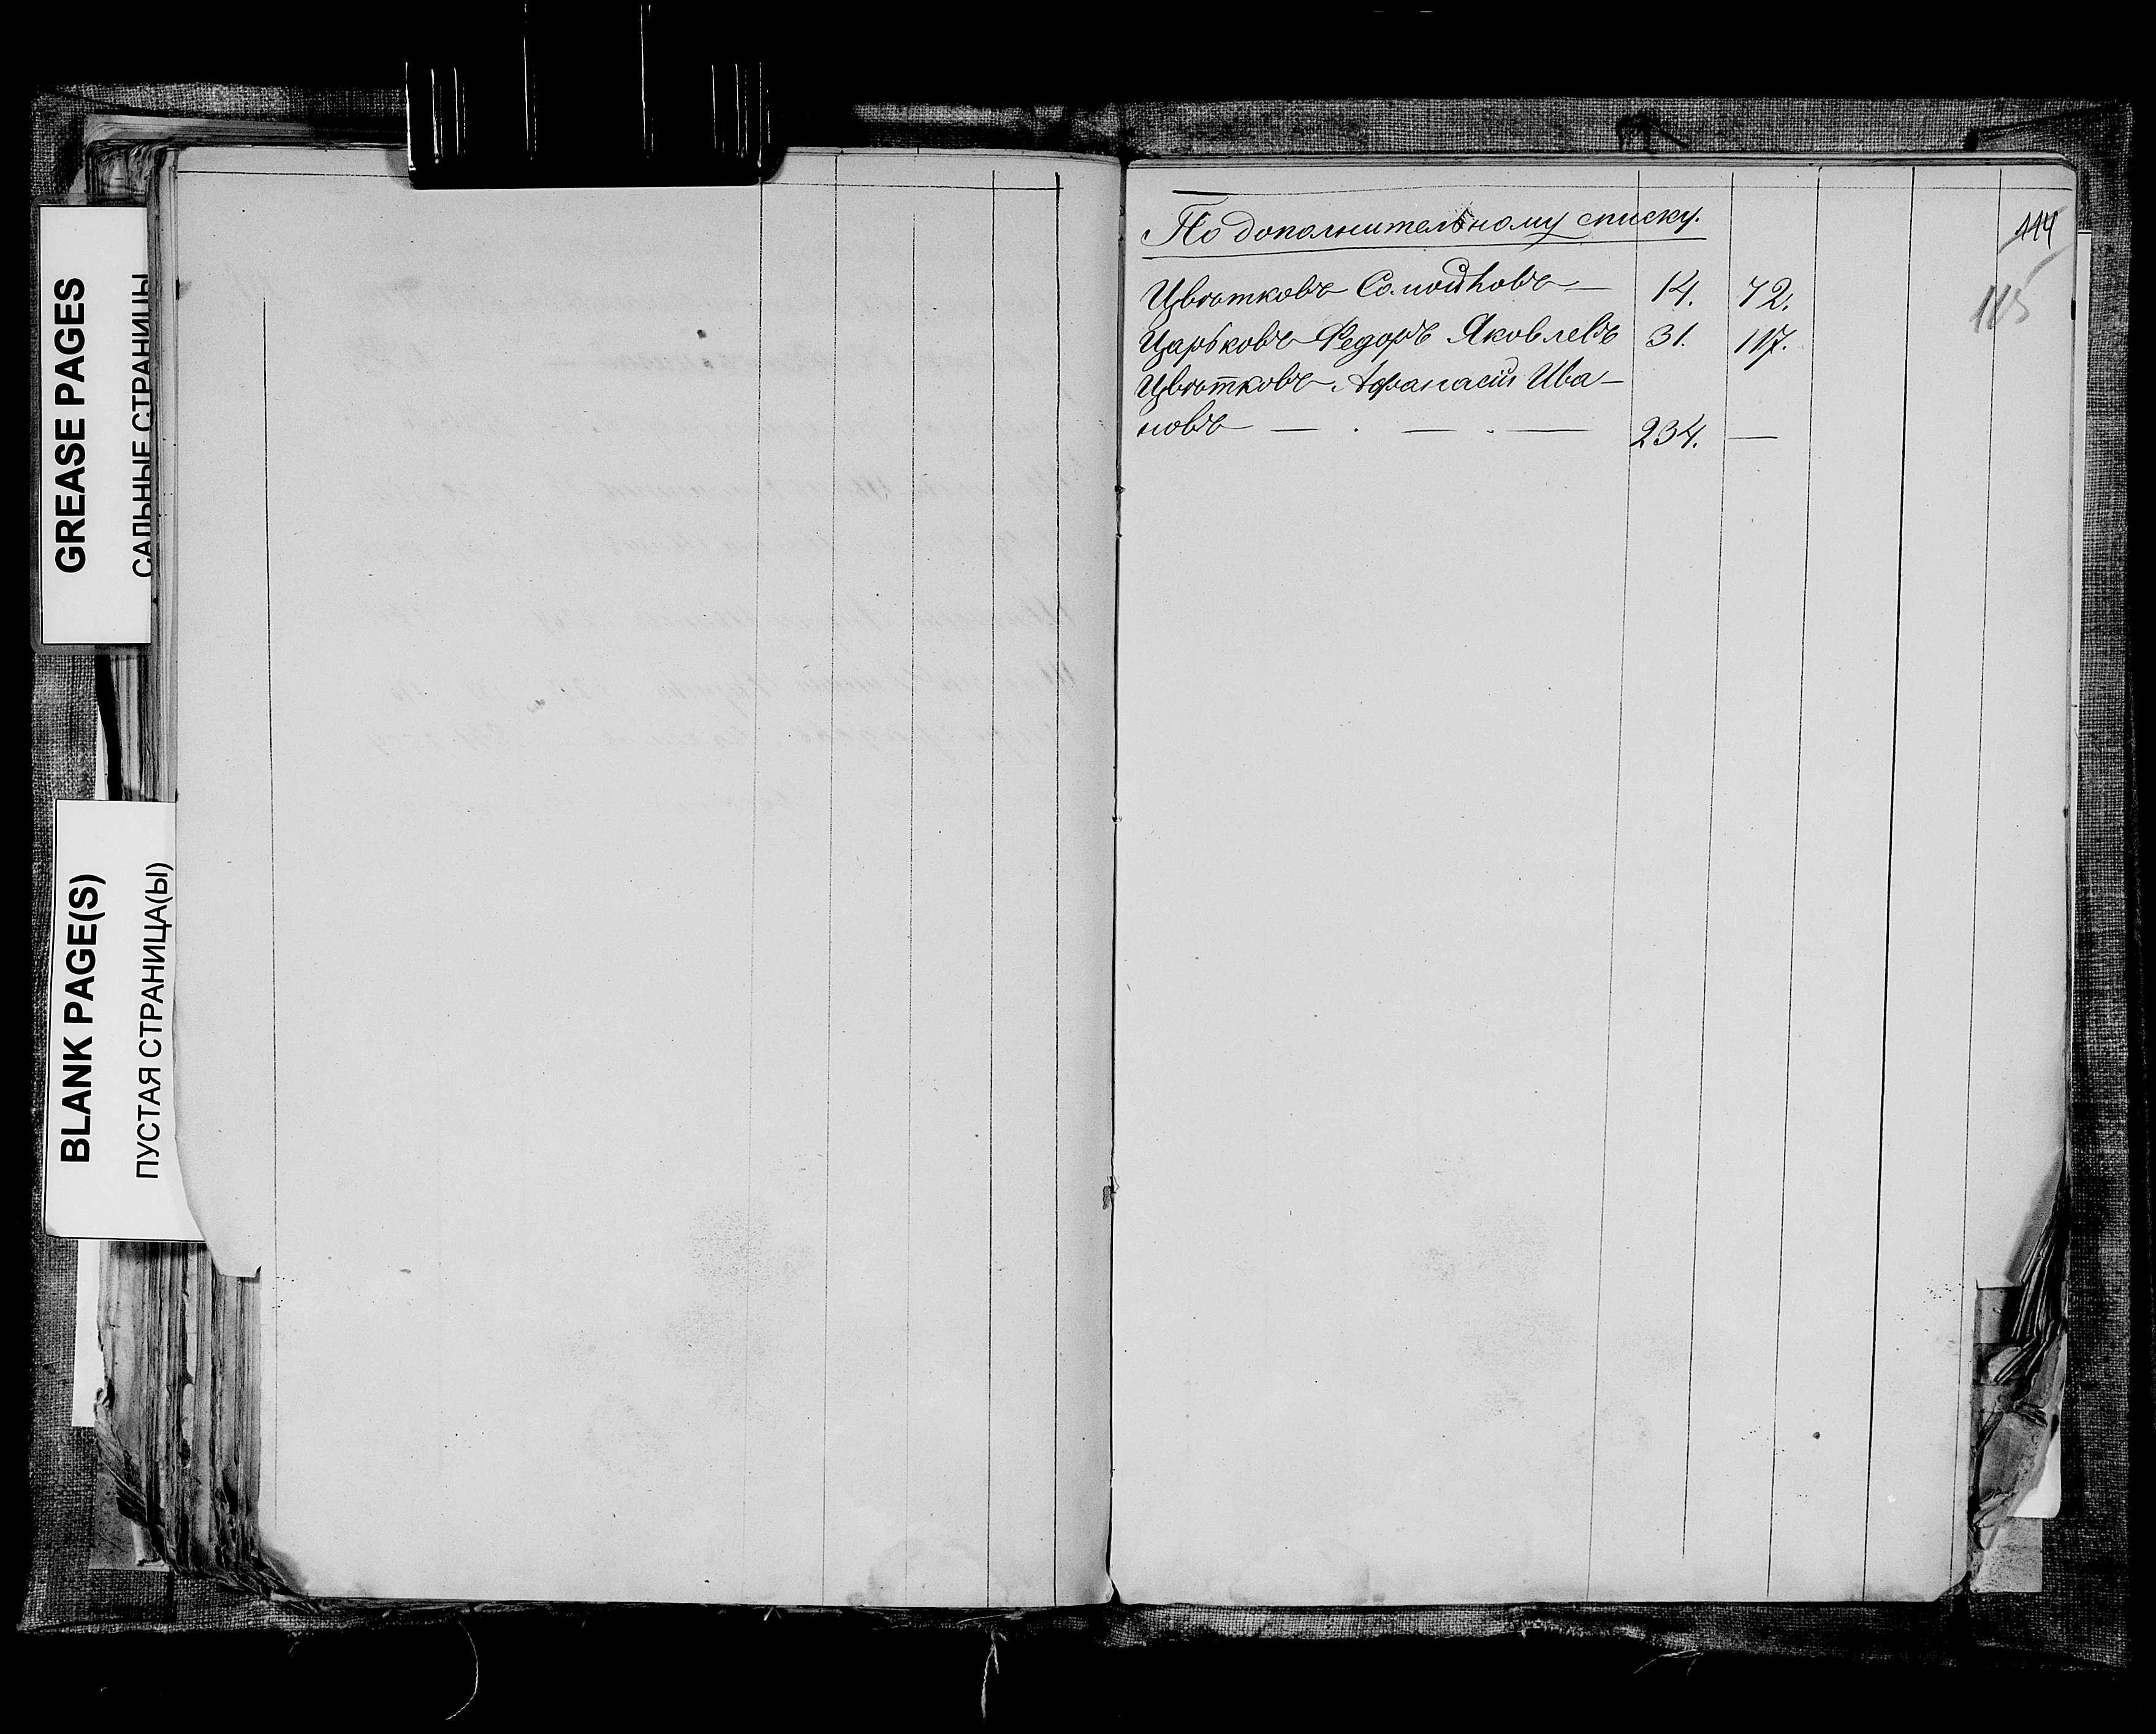 GREASE PAGES
САЛЬНЫЕ СТРАНИЦЫ
BLANK PAGE(S)
ПУСТАЯ СТРАНИЦА(Ы)
По дополнительному списку.
114
115
Цвѣтковъ — 14. 72.
Царьковъ Федоръ Яковлевъ 31. 117.
Цвѣтковъ Афанасій Ива-
новъ — . — . — 234. —